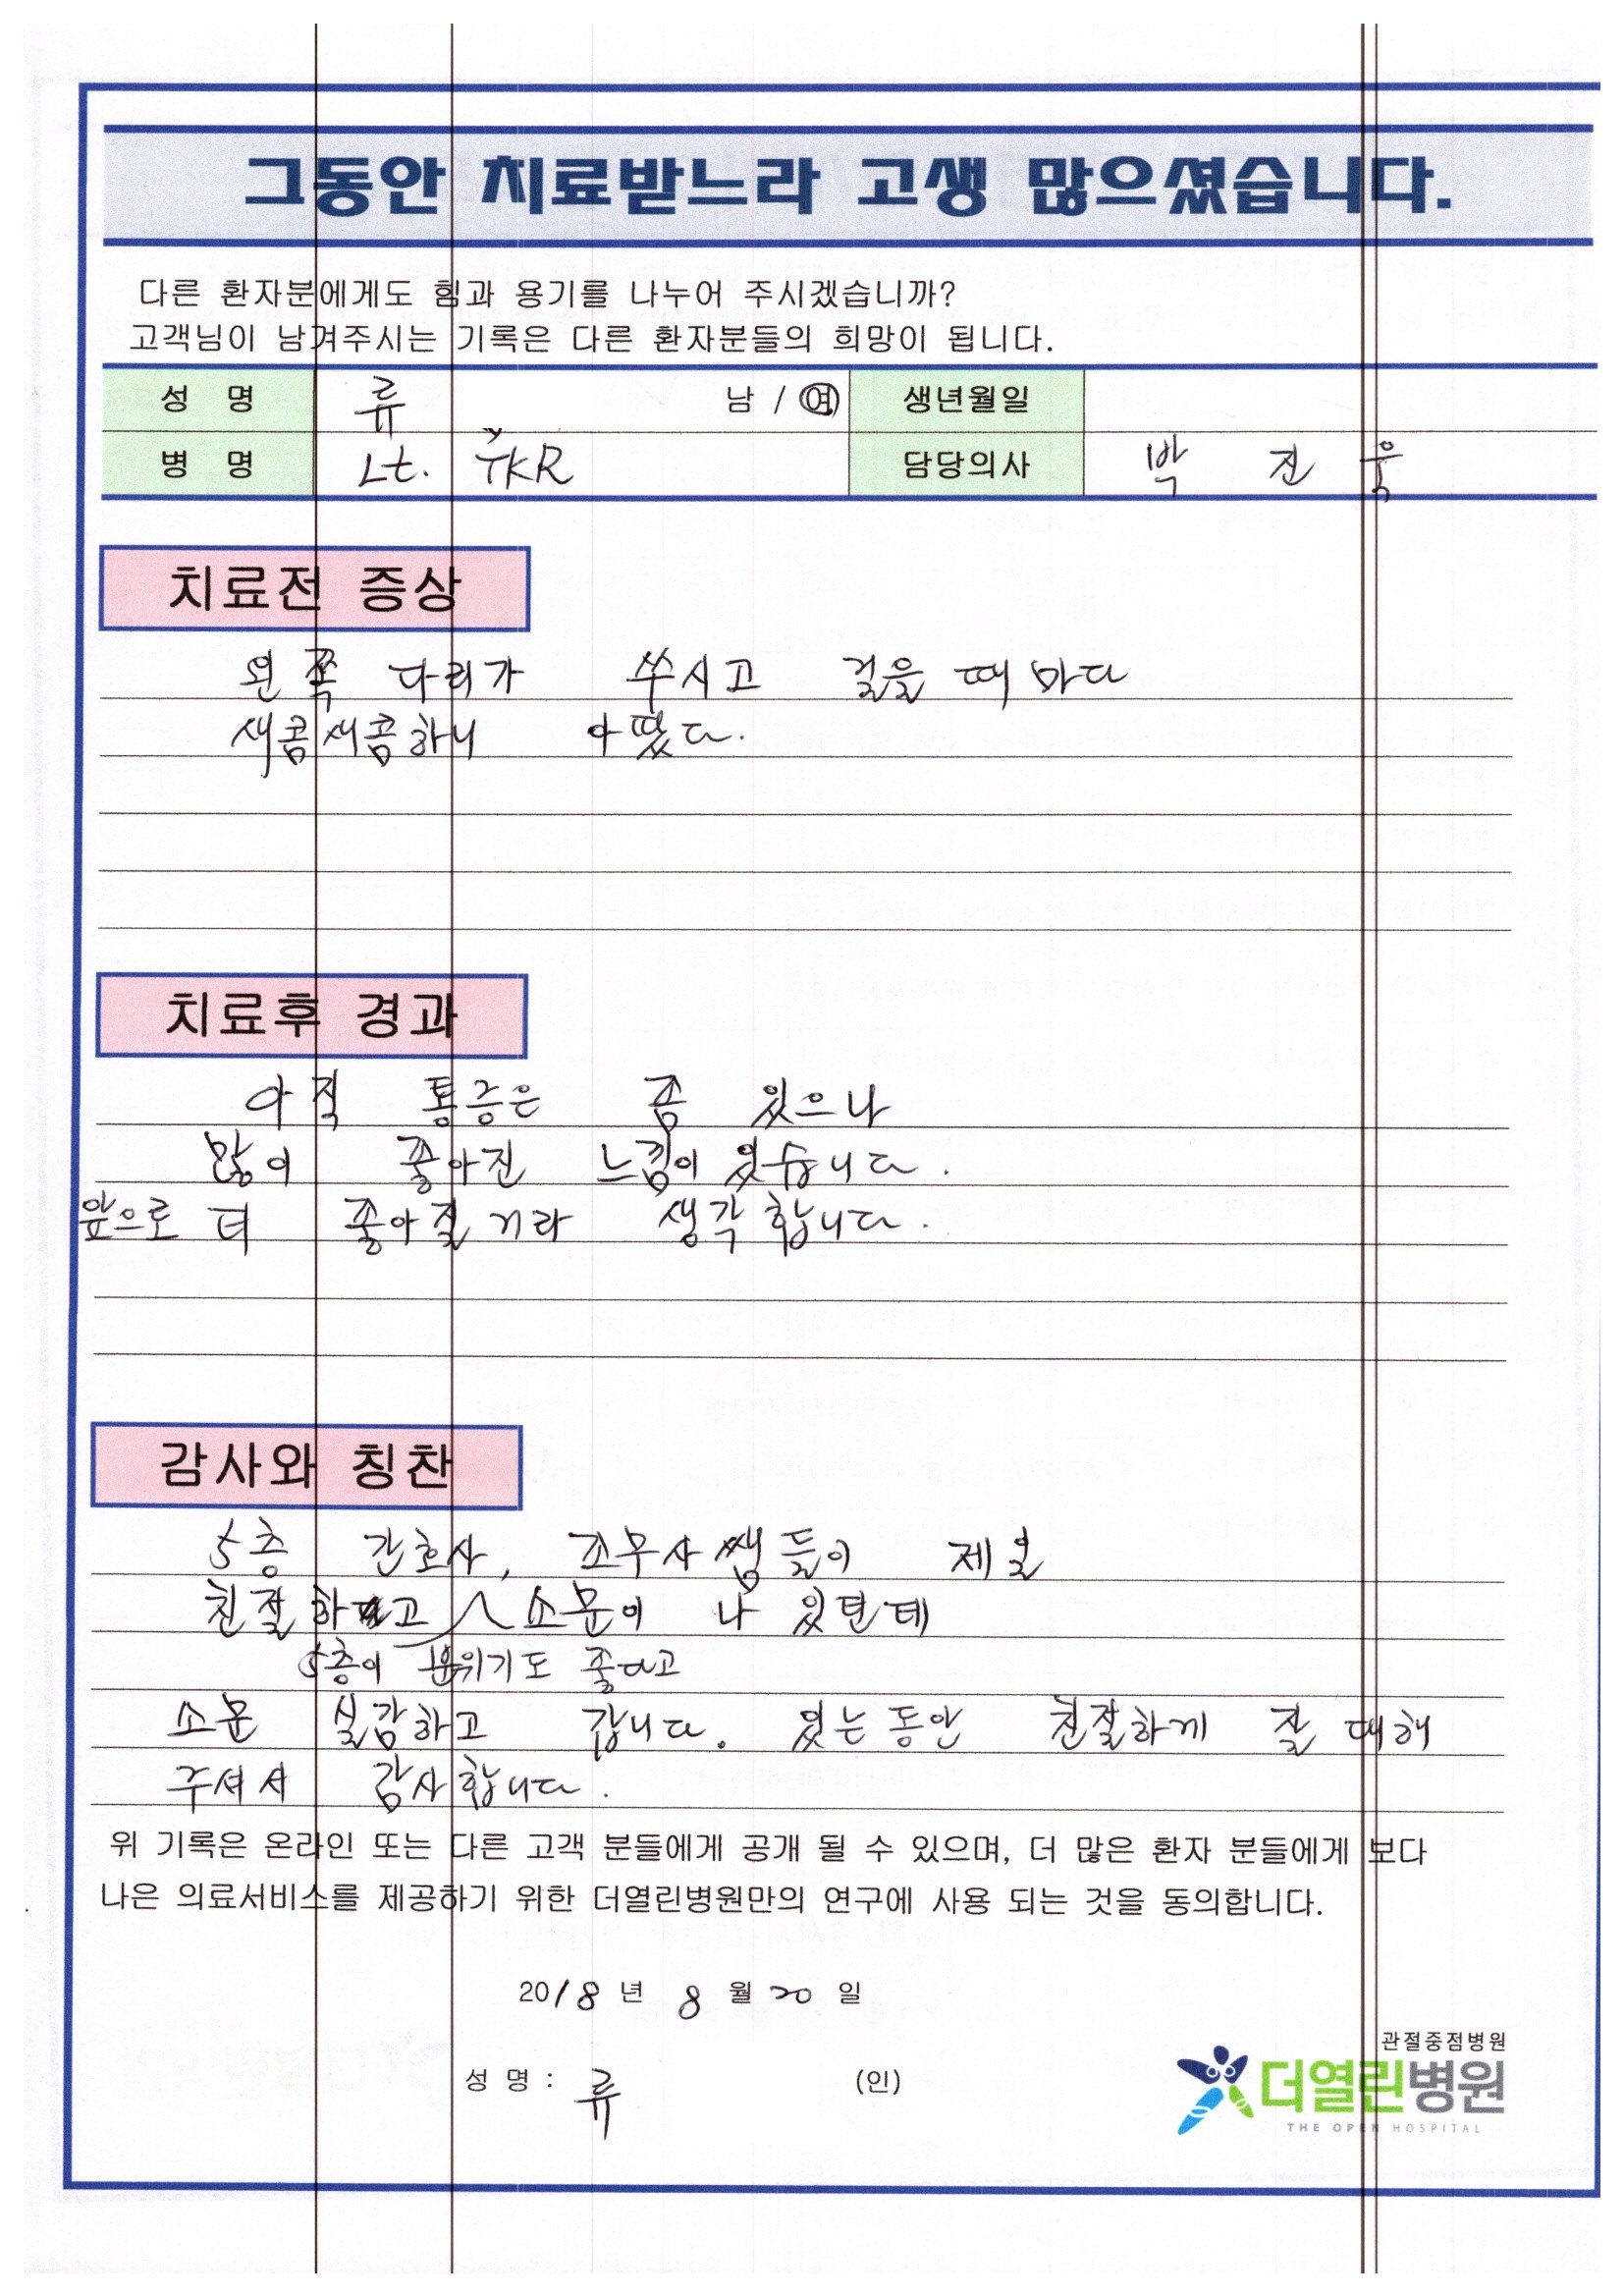 그동안 치료받느라 고생 많으셨습니다.
다른 환자분에게도 힘과 용기를 나누어 주시겠습니까?
고객님이 남겨주시는 기록은 다른 환자분들의 희망이 됩니다.
성 명 류 남 / 여 생년월일
병 명 Lt. TKR 담당의사 박 진 욱
치료전 증상
왼쪽 다리가 쑤시고 걸을 때 마다
새콤새콤하니 아팠다.
치료후 경과
아직 통증은 좀 있으나
많이 좋아진 느낌이 있습니다.
앞으로 더 좋아질거라 생각합니다.
감사와 칭찬
5층 간호사, 조무사쌤들이 제일
친절하고 소문이 나 있던데
5층이 분위기도 좋다고
소문 실감하고 갑니다. 있는동안 친절하게 잘 대해
주셔서 감사합니다.
위 기록은 온라인 또는 다른 고객 분들에게 공개 될 수 있으며, 더 많은 환자 분들에게 보다
나은 의료서비스를 제공하기 위한 더열린병원만의 연구에 사용 되는 것을 동의합니다.
2018 년 8 월 20 일
성 명 : 류 (인)
관절중점병원
더열린병원
THE OPEN HOSPITAL